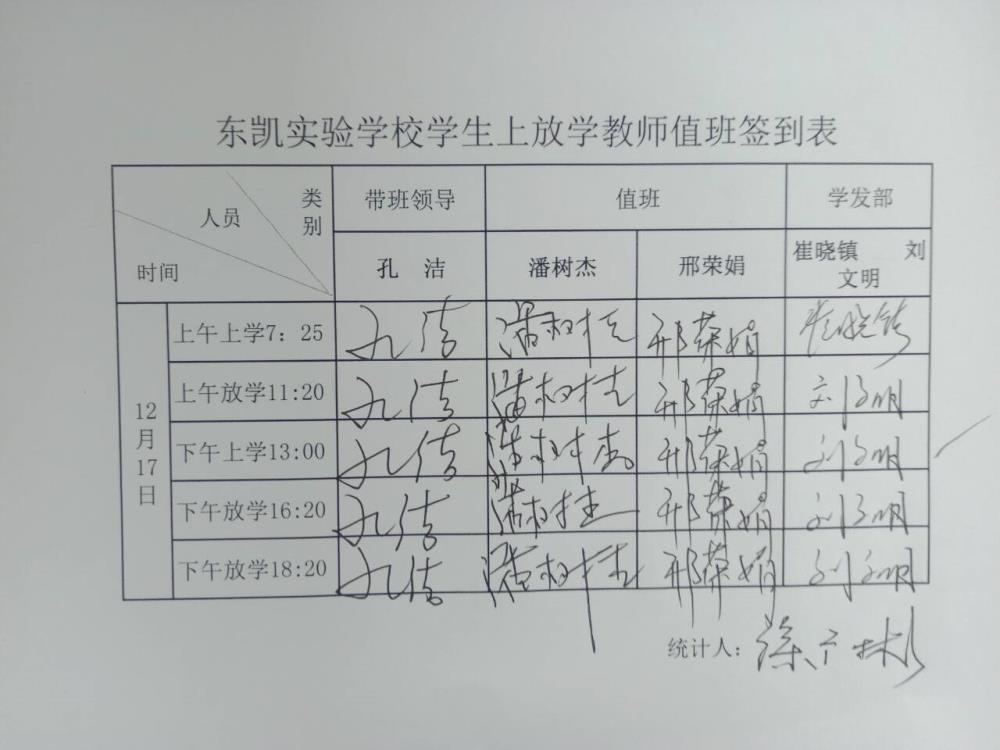 东凯实验学校学生上放学教师值班签到表
类别 人员 时间 带班领导 值班 学发部
孔 洁 潘树杰 邢荣娟 崔晓镇 刘文明
12月17日
上午上学7: 25 孔洁 潘树杰 邢荣娟 崔晓镇
上午放学11:20 孔洁 潘树杰 邢荣娟 刘文明
下午上学13:00 孔洁 潘树杰 邢荣娟 刘文明
下午放学16:20 孔洁 潘树杰 邢荣娟 刘文明
下午放学18:20 孔洁 潘树杰 邢荣娟 刘文明
统计人: